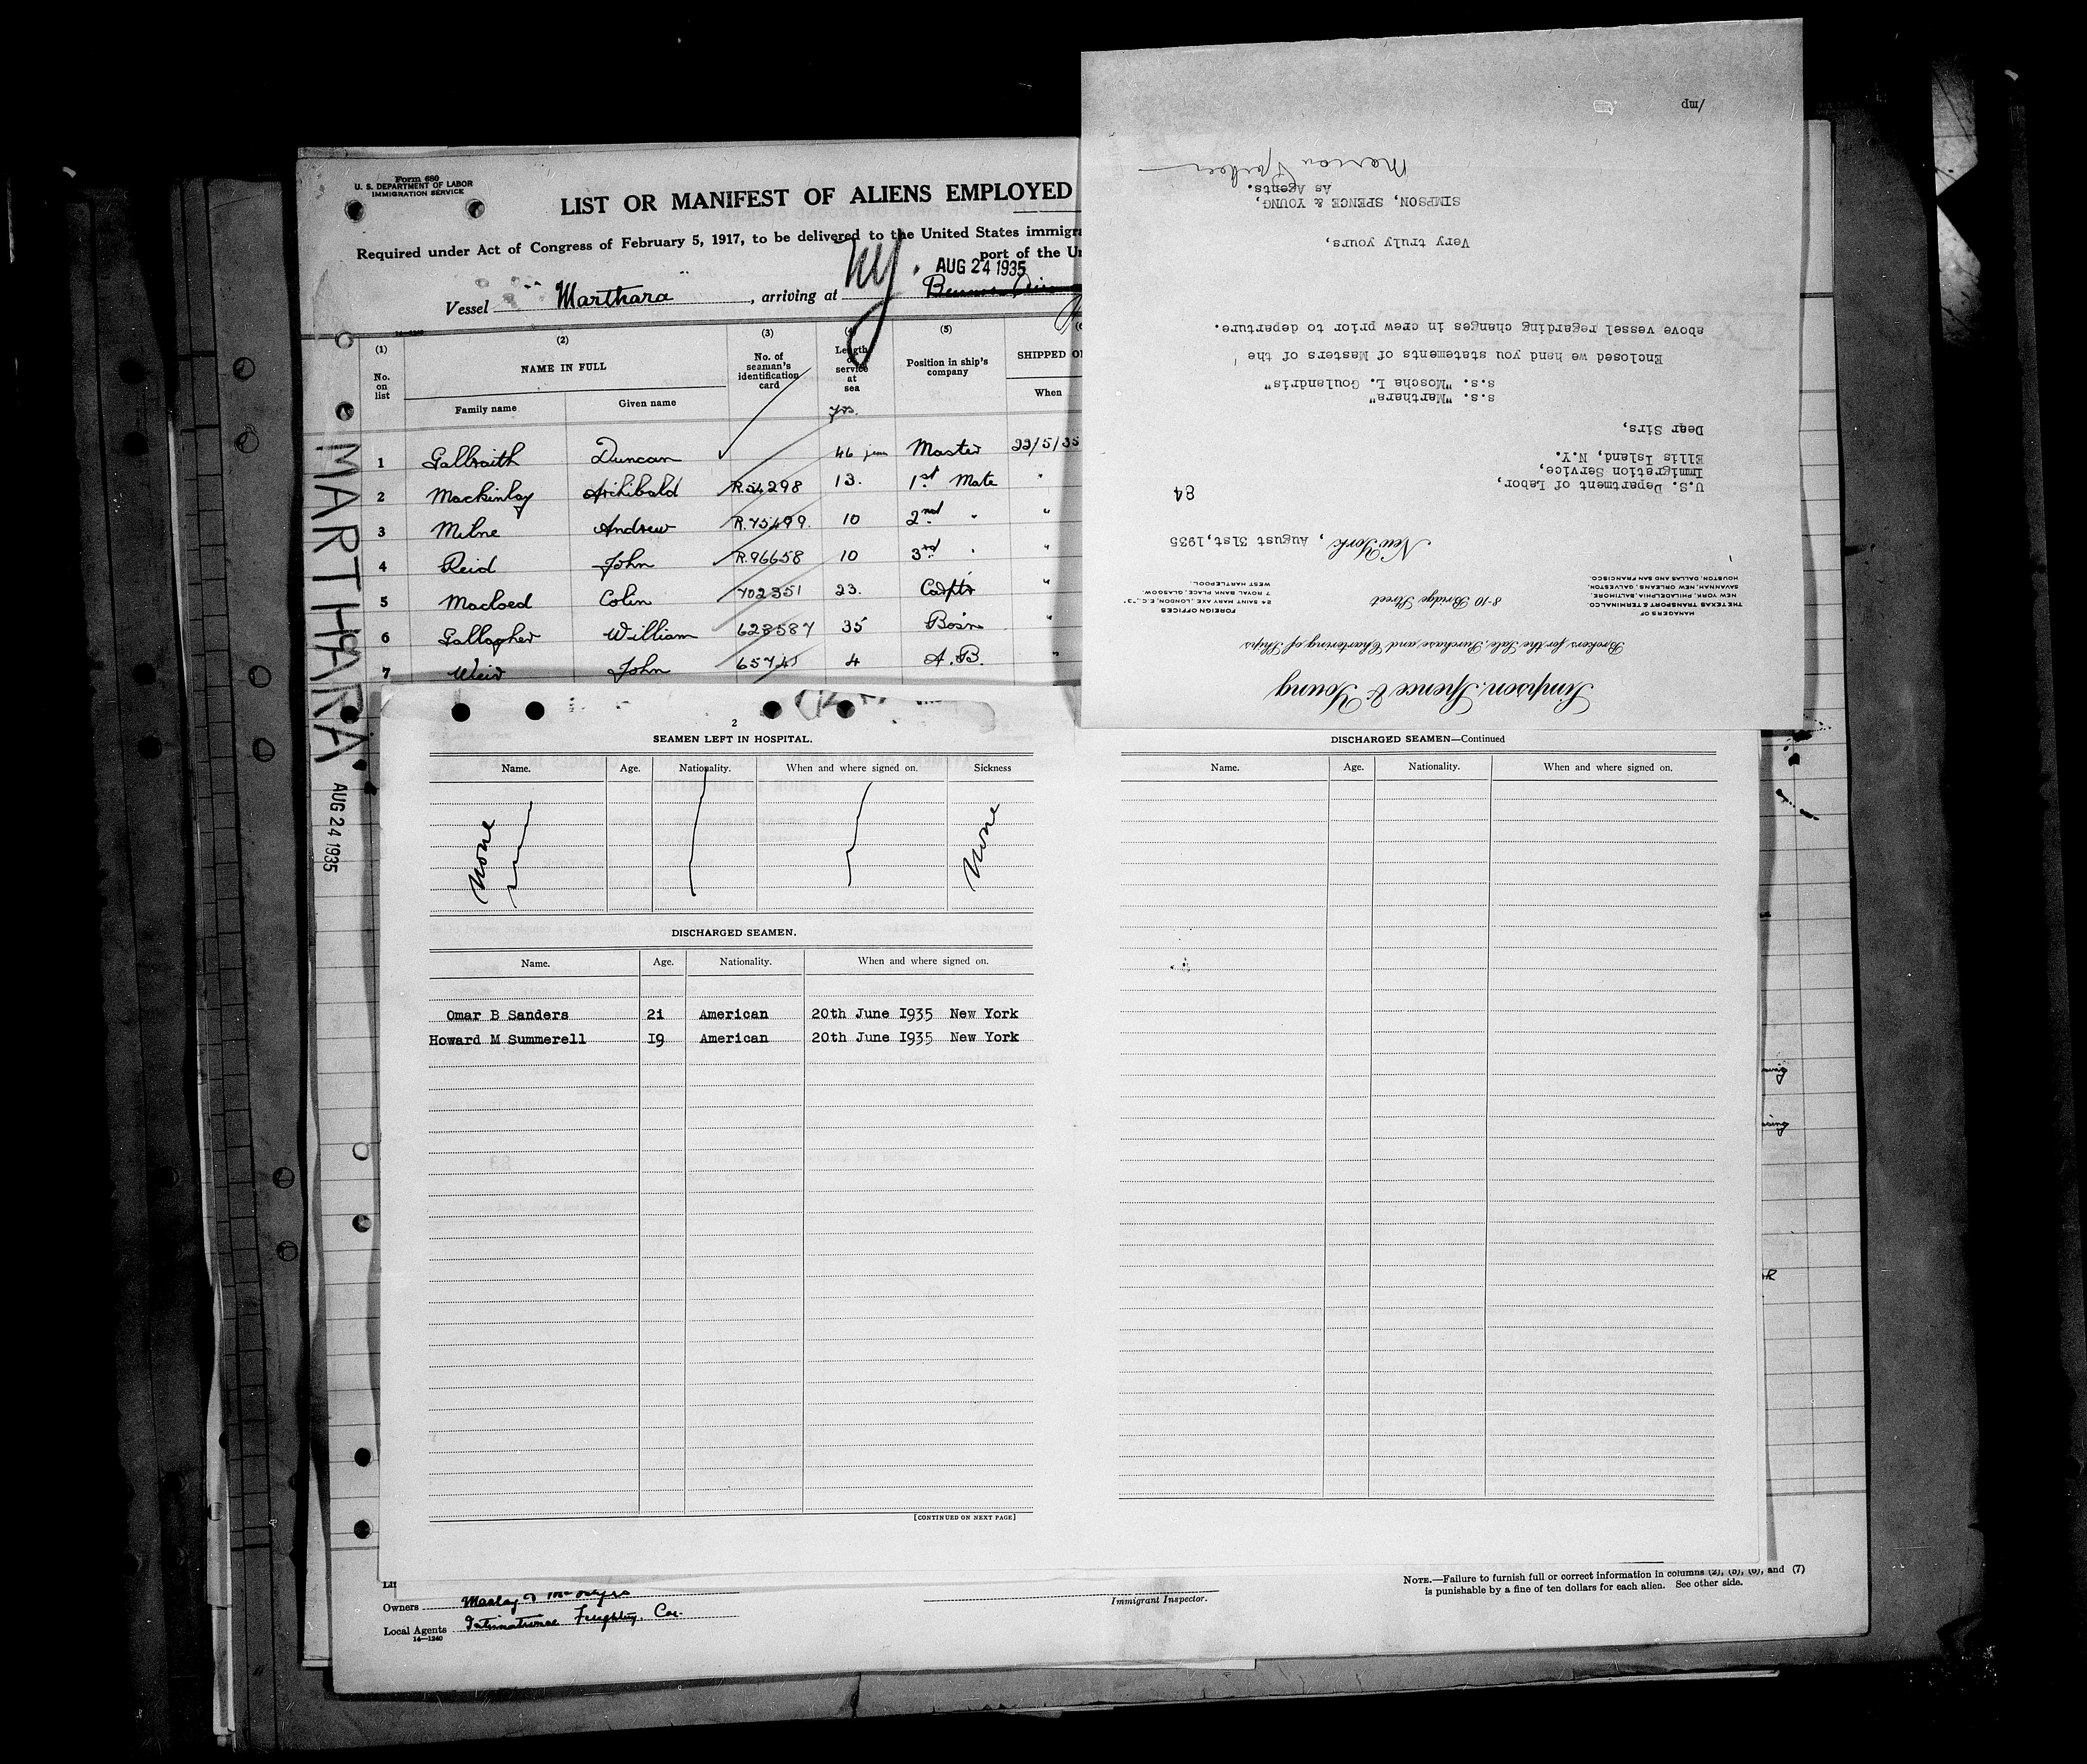 Form 680
U. S. DEPARTMENT OF LABOR
IMMIGRATION SERVICE
LIST OR MANIFEST OF ALIENS EMPLOYED
Required under Act of Congress of February 5, 1917, to be delivered to the United States immigra
port of the Un
NY.
AUG 24 1935
Vessel Marthara, arriving at
14-1240
(1) (2) (3) (4) (5)
No. on list
NAME IN FULL
Family name Given name
No. of seaman's identification card
Length of service at sea
yrs.
Position in ship's company
SHIPPED O
When
1 Galbraith Duncan 46 Master 22/5/35
2 Mackinlay Archibald R.54298 13. 1st Mate "
3 Milne Andrew R.75499 10 2nd " "
4 Reid John R.96658 10 3rd " "
5 Macloed Colin 702351 23. Carptr "
6 Gallagher William 628587 35 Bosn "
7 Weir John 65741 4 A.B. "
MARTHARA
AUG 24 1935
Simpson, Spence & Young
Brokers for the Sale, Purchase and Chartering of Ships
8-10 Bridge Street
MANAGERS OF
THE TEXAS TRANSPORT & TERMINAL CO.
NEW YORK, PHILADELPHIA, BALTIMORE,
SAVANNAH, NEW ORLEANS, GALVESTON,
HOUSTON, DALLAS AND SAN FRANCISCO.
FOREIGN OFFICES
24 SAINT MARY AXE, LONDON, E.C., "3"
7 ROYAL BANK PLACE, GLASGOW.
WEST HARTLEPOOL.
New York, August 31st, 1935
84
U.S. Department of Labor,
Immigration Service,
Ellis Island, N.Y.
Dear Sirs,
s.s. "Marthara"
s.s. "Moscha L. Goulandris"
Enclosed we hand you statements of Masters of the
above vessel regarding changes in crew prior to departure.
Very truly yours,
SIMPSON, SPENCE & YOUNG,
As Agents.
/mp
2
SEAMEN LEFT IN HOSPITAL.
Name. Age. Nationality. When and where signed on. Sickness
None None
DISCHARGED SEAMEN.
Name. Age. Nationality. When and where signed on.
Omar B Sanders 21 American 20th June 1935 New York
Howard M Summerell 19 American 20th June 1935 New York
[CONTINUED ON NEXT PAGE]
DISCHARGED SEAMEN—Continued
Name. Age. Nationality. When and where signed on.
Owners
Local Agents International Freighting Cor.
14-1240
Immigrant Inspector.
NOTE.—Failure to furnish full or correct information in columns (2), (5), (6), and (7)
is punishable by a fine of ten dollars for each alien. See other side.